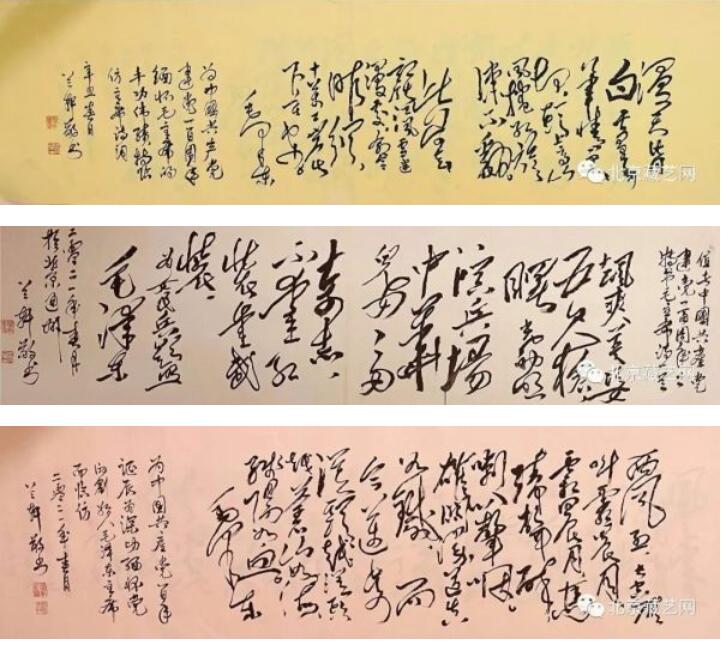 漫天皆
白雪里行
军情更迫
头上高山
风卷红旗
此行何去
赣江风雪迷
漫处命令
昨颁
十万工农
下吉安
毛泽东
为中國共产党
建党一百周年
缅怀毛主席的
丰功伟绩特临
仿主席诗词
辛丑春月
兰轩敬书
北京藏艺网
值此中國共產党
建党一百周年之
特书毛主席诗
飒爽英姿
五尺枪
曙光初照
演兵场
中華
兒女多
奇志
不爱红
装爱武
装
为女民兵题照
毛泽东
二零二一年春月
於北京通州
兰轩敬书
北京藏艺网
西风烈长空雁
叫霜晨月
霜晨月马蹄
声碎
喇叭声咽
雄関漫道真
如鐵而
今迈步
从头越从头
越苍山如海
残阳如血
毛泽东
为中国共產党百年
诞辰
缅怀党
的创始人毛泽东主席
而临仿
二零二一年春月
兰轩敬书
北京藏艺网